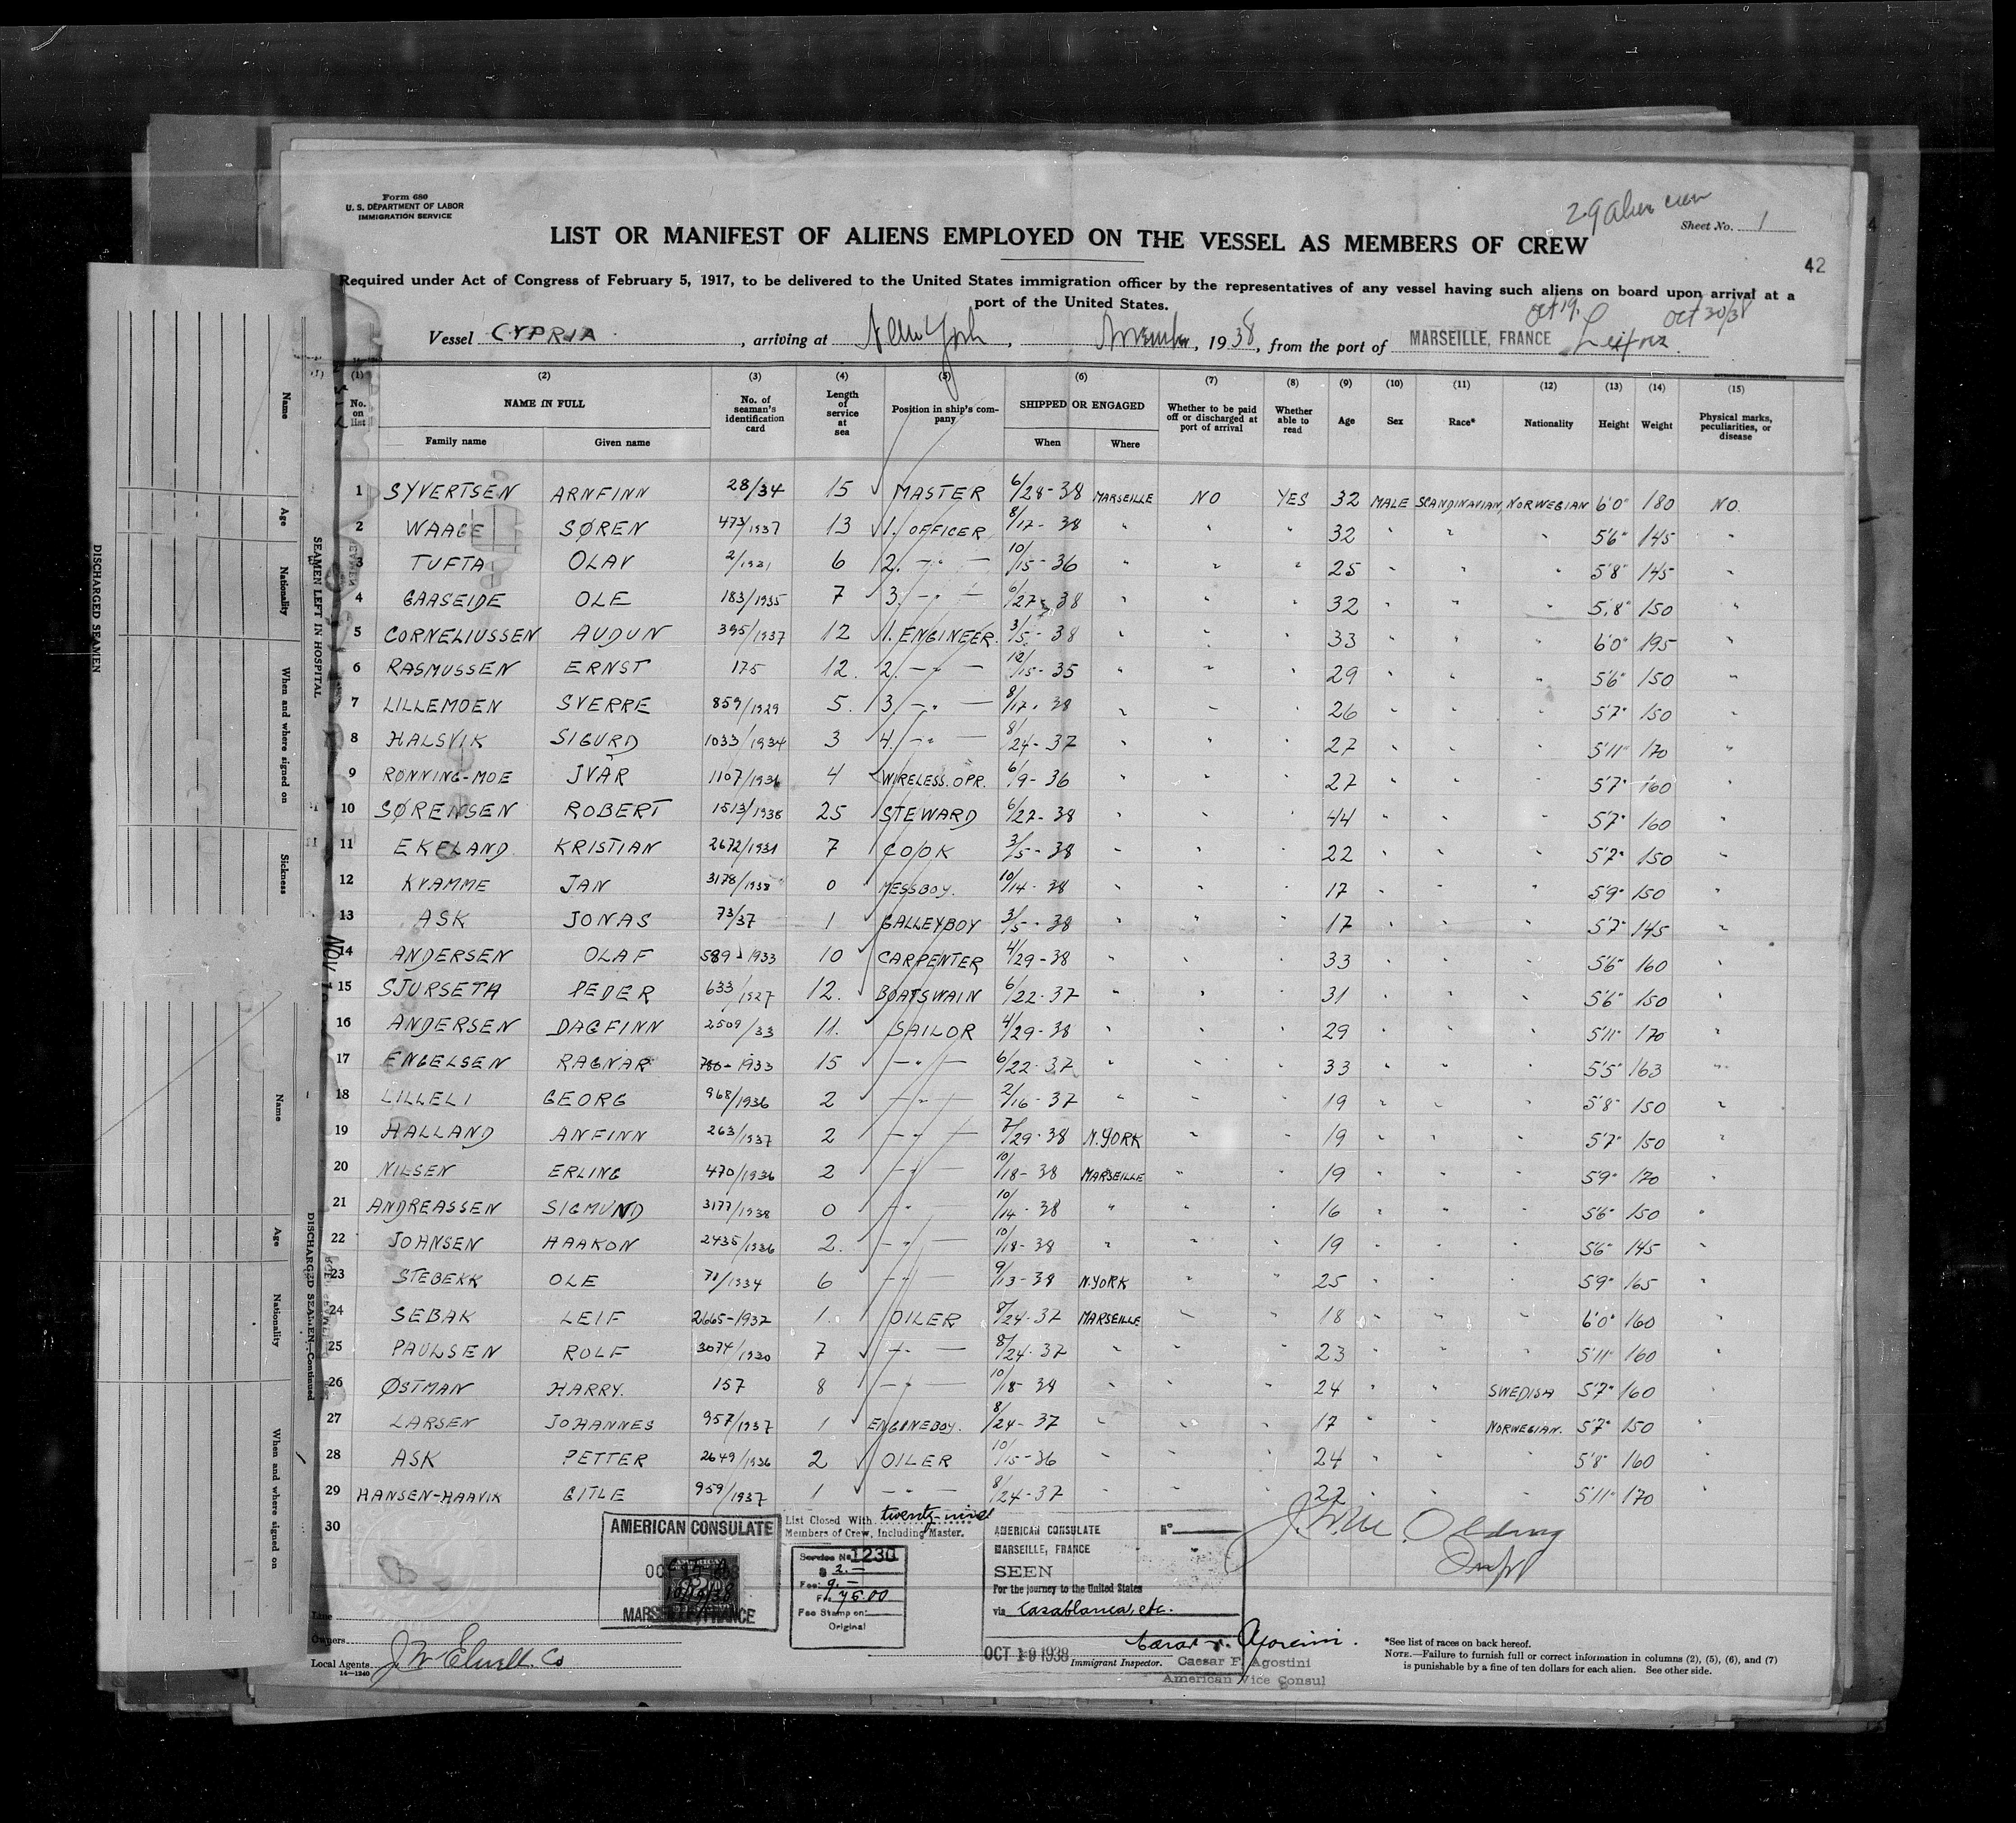 Form 680
U. S. DEPARTMENT OF LABOR
IMMIGRATION SERVICE
29 alien crew
Sheet No. 1
LIST OR MANIFEST OF ALIENS EMPLOYED ON THE VESSEL AS MEMBERS OF CREW
42
Required under Act of Congress of February 5, 1917, to be delivered to the United States immigration officer by the representatives of any vessel having such aliens on board upon arrival at a
port of the United States.
Oct 19, Oct 30/38
Vessel CYPRIA, arriving at New York, November, 1938, from the port of MARSEILLE, FRANCE
(1) (2) (3) (4) (5) (6) (7) (8) (9) (10) (11) (12) (13) (14) (15)
No. on list NAME IN FULL Family name Given name No. of seaman's identification card Length of service at sea Position in ship's company SHIPPED OR ENGAGED When Where Whether to be paid off or discharged at port of arrival Whether able to read Age Sex Race* Nationality Height Weight Physical marks, peculiarities, or disease
1 SYVERTSEN ARNFINN 28/34 15 MASTER 6/28-38 MARSEILLE NO YES 32 MALE SCANDINAVIAN NORWEGIAN 6'0" 180 NO.
2 WAAGE SØREN 473/1937 13 1. OFFICER 8/17-38 " " " 32 " " " 5'6" 145 "
3 TUFTA OLAV 2/1931 6 2. -"- 10/15-36 " " " 25 " " " 5'8" 145 "
4 GAASEIDE OLE 183/1935 7 3. -"- 6/27-38 " " " 32 " " " 5'8" 150 "
5 CORNELIUSSEN AUDUN 395/1937 12 1. ENGINEER. 3/5-38 " " " 33 " " " 6'0" 195 "
6 RASMUSSEN ERNST 175 12. 2. -"- 12/15-35 " " " 29 " " " 5'6" 150 "
7 LILLEMOEN SVERRE 859/1929 5. 3. -"- 8/17-38 " " " 26 " " " 5'7" 150 "
8 HALSVIK SIGURD 1033/1934 3 4. -"- 8/24-37 " " " 27 " " " 5'11" 170 "
9 RØNNING-MOE IVAR 1107/1936 4 WIRELESS. OPR. 6/9-36 " " " 27 " " " 5'7" 160 "
10 SØRENSEN ROBERT 1513/1938 25 STEWARD 6/27-38 " " " 44 " " " 5'7" 160 "
11 EKELAND KRISTIAN 2672/1931 7 COOK 3/5-38 " " " 22 " " " 5'7" 150 "
12 KVAMME JAN 3178/1938 0 MESSBOY. 10/14-38 " " " 17 " " " 5'9" 150 "
13 ASK JONAS 73/37 1 GALLEYBOY 3/5-38 " " " 17 " " " 5'7" 145 "
14 ANDERSEN OLAF 589-1933 10 CARPENTER 4/29-38 " " " 33 " " " 5'6" 160 "
15 SJURSETH PEDER 633/1927 12. BOATSWAIN 6/22-37 " " " 31 " " " 5'6" 150 "
16 ANDERSEN DAGFINN 2509/33 11. SAILOR 4/29-38 " " " 29 " " " 5'11" 170 "
17 ENGELSEN RAGNAR 780-1933 15 -"- 6/22-37 " " " 33 " " " 5'5" 163 "
18 LILLELI GEORG 968/1936 2 -"- 2/16-37 " " " 19 " " " 5'8" 150 "
19 HALLAND ANFINN 263/1937 2 -"- 7/29-38 N.YORK " " 19 " " " 5'7" 150 "
20 NILSEN ERLING 470/1936 2 -"- 10/18-38 MARSEILLE " " 19 " " " 5'9" 170 "
21 ANDREASSEN SIGMUND 3177/1938 0 -"- 10/14-38 " " " 16 " " " 5'6" 150 "
22 JOHNSEN HAAKON 2435/1936 2. -"- 10/18-38 " " " 19 " " " 5'6" 145 "
23 STEBEKK OLE 71/1934 6 -"- 9/13-38 N.YORK " " 25 " " " 5'9" 165 "
24 SEBAK LEIF 2665-1937 1. OILER 8/24-37 MARSEILLE " " 18 " " " 6'0" 160 "
25 PAULSEN ROLF 3074/1930 7 -"- 8/24-37 " " " 23 " " " 5'11" 160 "
26 ØSTMAN HARRY. 157 8 -"- 10/18-38 " " " 24 " " SWEDISH 5'7" 160 "
27 LARSEN JOHANNES 957/1937 1 ENGINEBOY. 8/24-37 " " " 17 " " NORWEGIAN. 5'7" 150 "
28 ASK PETTER 2649/1936 2 OILER 10/15-36 " " " 24 " " " 5'8" 160 "
29 HANSEN-HAAVIK GITLE 959/1937 1 -"- 8/24-37 " " " 22 " " " 5'11" 170 "
30
AMERICAN CONSULATE
MARSEILLE, FRANCE
List Closed With twenty-nine
Members of Crew, Including Master.
Service No 1230
$ 2.—
Fee:
Fr. 76.00
Fee Stamp on:
Original
AMERICAN CONSULATE No
MARSEILLE, FRANCE
SEEN
For the journey to the United States
via Casablanca, etc.
OCT 19 1938
Immigrant Inspector.
Caesar F. Agostini
American Vice Consul
Line
Owners
Local Agents J W Elwell. Co
14-1240
*See list of races on back hereof.
NOTE.—Failure to furnish full or correct information in columns (2), (5), (6), and (7)
is punishable by a fine of ten dollars for each alien. See other side.
DISCHARGED SEAMEN
SEAMEN LEFT IN HOSPITAL
Name
Age
Nationality
When and where signed on
Sickness
DISCHARGED SEAMEN—Continued
Name
Age
Nationality
When and where signed on